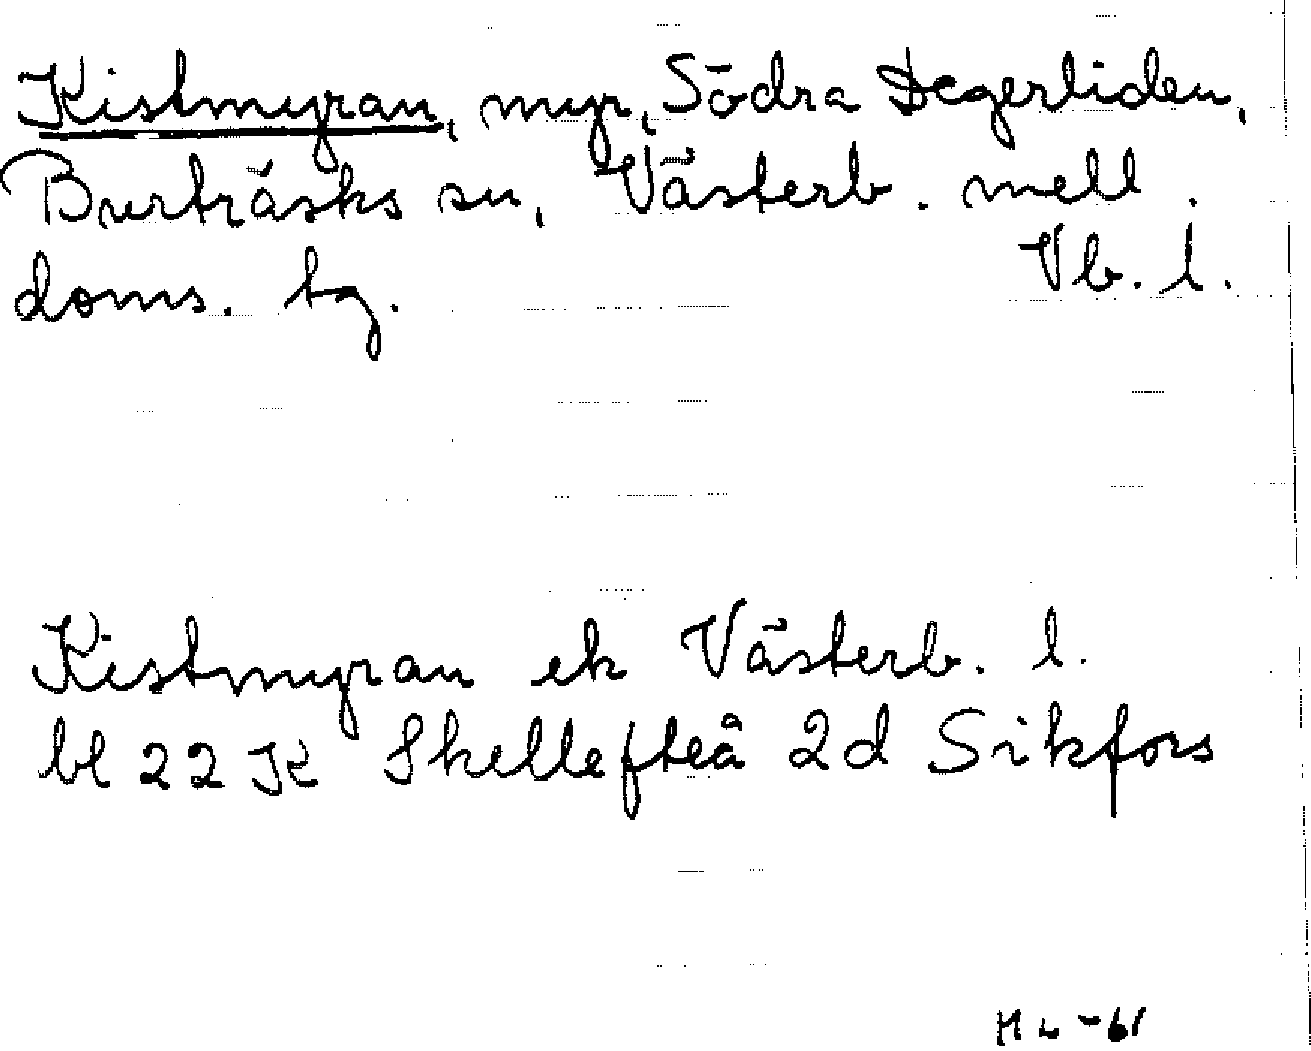 Kistmyran, myr, Södra Degerliden,
Burträsks sn, Västerb. mell.
doms. tg. Vb. l.
Kistmyran ek Västerb. l.
bl 22 K Skellefteå 2d Sikfors
H L -61